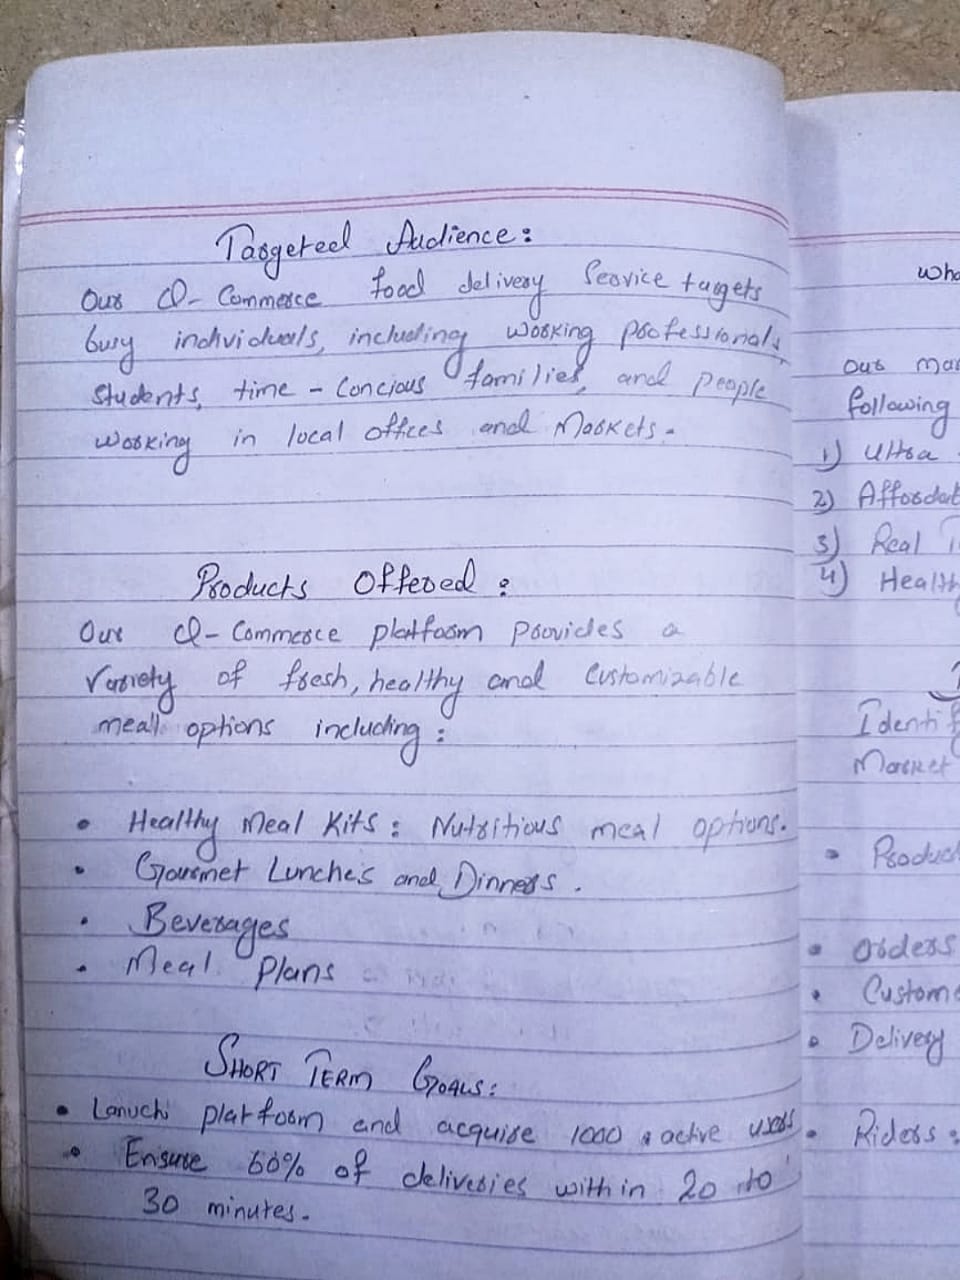 Targeted Audience:
Our Q-Commerce food delivery Service targets
busy individuals, including working professionals,
Students, time-Concious families, and people
working in local offces and Markets.
Products Offered:
Our Q-Commerce platform provides a
Variety of fresh, healthy and Customizable
meal options including:
• Healthy Meal Kits: Nutritious meal options.
• Gourmet Lunches and Dinners.
• Beverages
• Meal Plans
SHORT TERM GOALS:
• Lanuch platform and acquire 1000 active users
• Ensure 60% of deliveries within 20 to
30 minutes.
Our
following
1) Ultra
2)
3) Real
4)
Market
•
• Orders
•
• Delivery
• Riders: